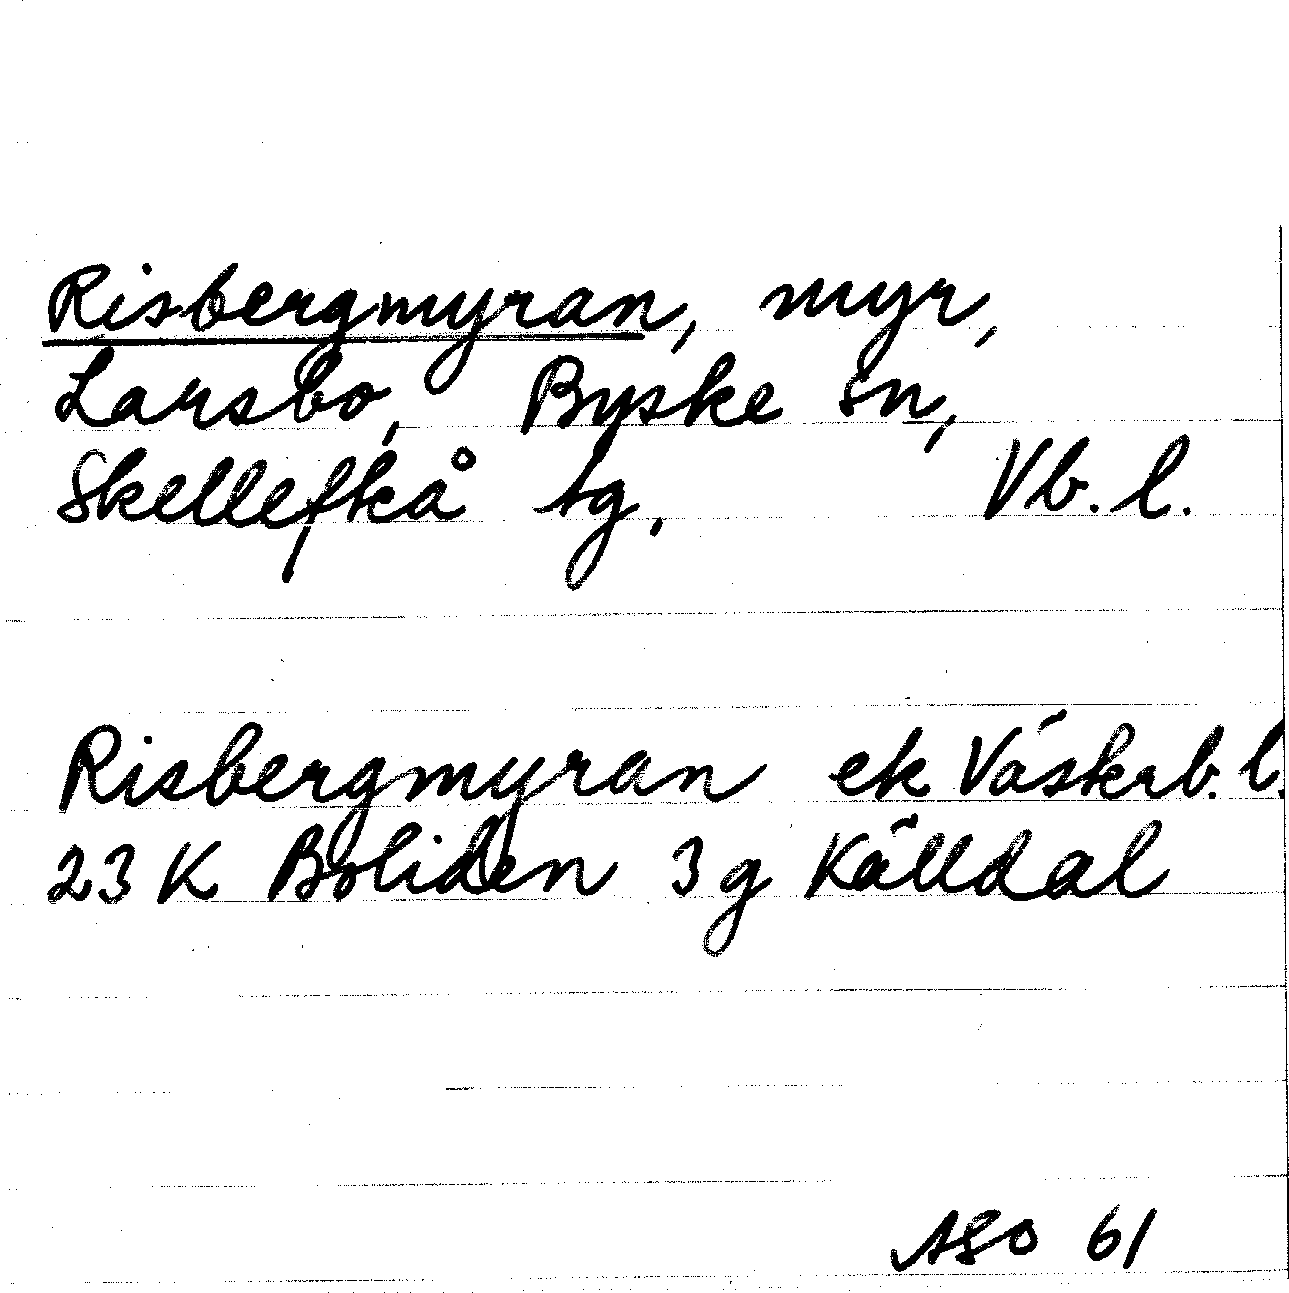 Risbergmyran, myr,
Larsbo, Byske sn,
Skellefteå tg, Vb. l.
Risbergmyran ek Väskerb. l.
23 K Boliden 3 g Källdal
ASO 61